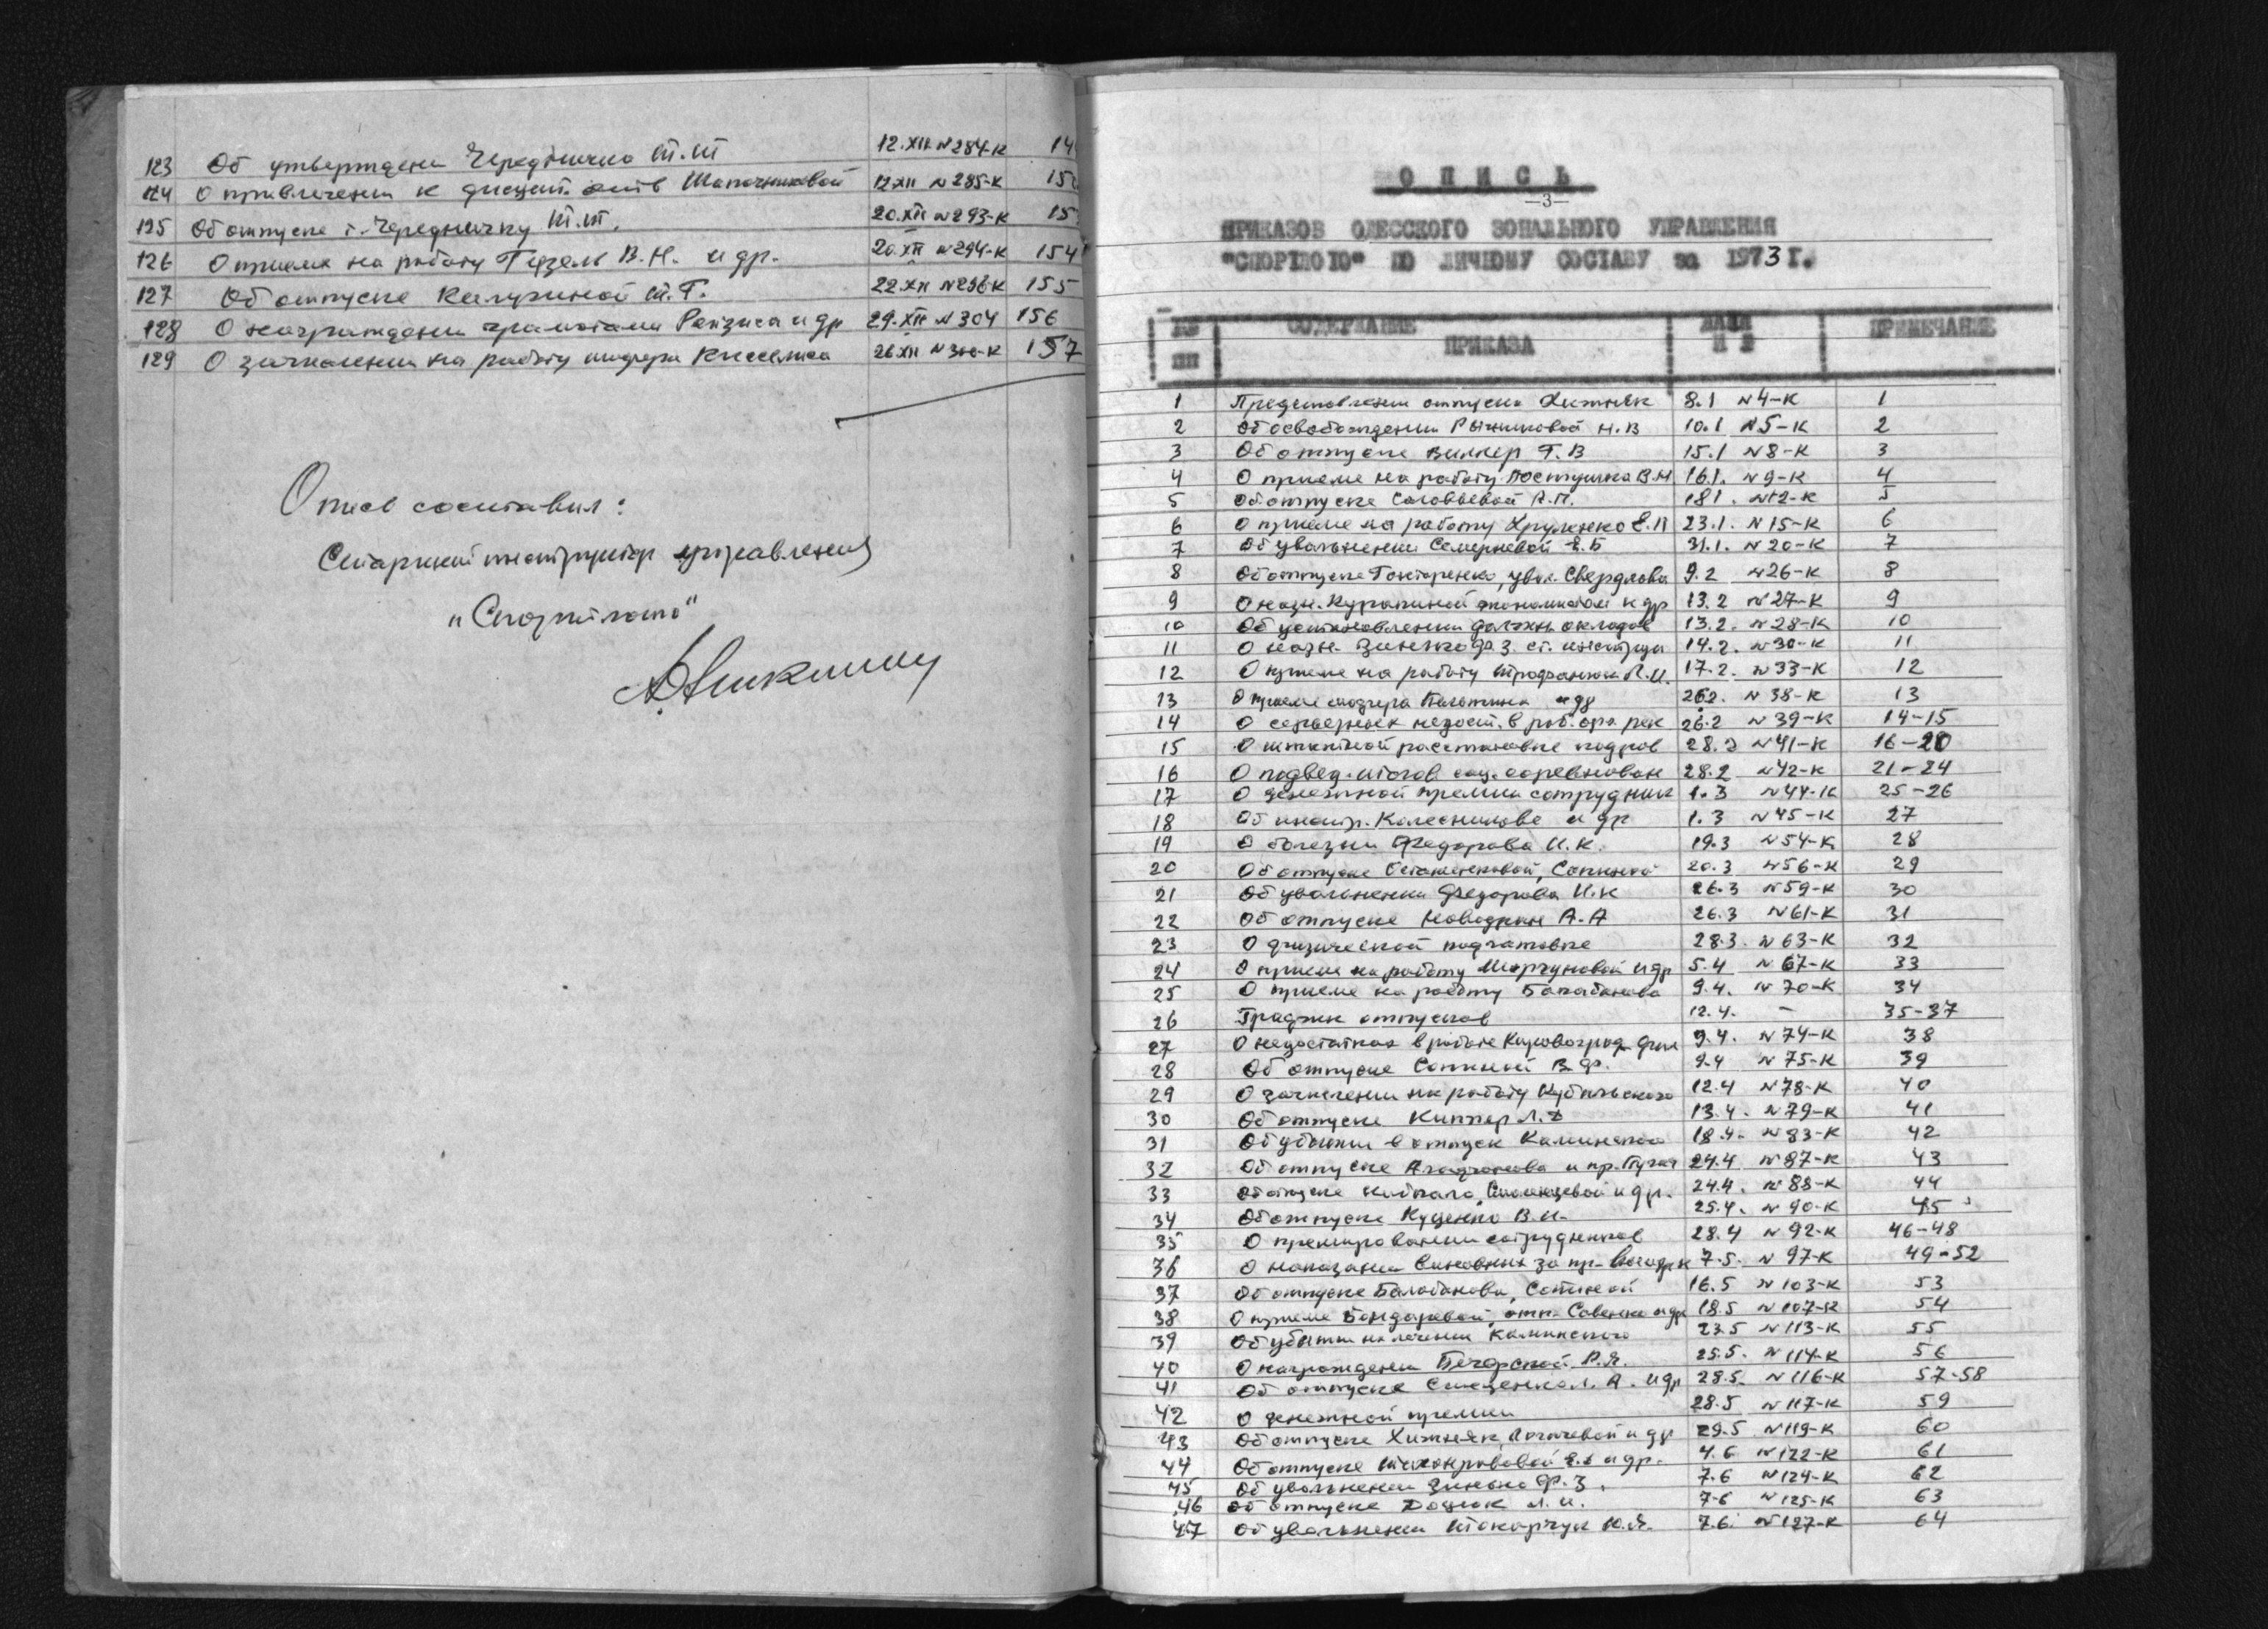 123 Об утверждении Т.Т 12.XII № 284-К
124 О привлечении к дисцип. отв Шапочниковой 12.XII № 285-К
125 Об отпуске т. Чередничку Т.Т. 20.XII № 293-К
126 О приеме на работу В.Н. и др. 20.XII № 294-К 154
127 Об отпуске Т.Г. 22.XII № 296-К 155
128 О награждении грамотами и др 29.XII № 304 156
129 О зачислении на работу шофера Киселева 26.XII № 300-К 157
Опись составил:
Старший инструктор управления
"Спортлото"
ОПИСЬ
-3-
ПРИКАЗОВ ОДЕССКОГО ЗОНАЛЬНОГО УПРАВЛЕНИЯ
"СПОРТЛОТО" ПО ЛИЧНОМУ СОСТАВУ за 1973 г.
№№ СОДЕРЖАНИЕ ДАТА ПРИМЕЧАНИЕ
ПП ПРИКАЗА И №
1 отпуска Хижняк 8.1 № 4-К 1
2 Об освобождении Н.В 10.1 № 5-К 2
3 Об отпуске Вилкер Г.В 15.1 № 8-К 3
4 О приеме на работу В.Н 16.1. № 9-К 4
5 Об отпуске Соловьевой А.П. 18.1. № 12-К 5
6 О приеме на работу Е.П 23.1. № 15-К 6
7 Об увольнении Е.Б 31.1. № 20-К 7
8 Об отпуске Гонторенко, увол. Свердлова 9.2 № 26-К 8
9 О назн. экономистом и др 13.2 № 27-К 9
10 Об установлении должн. окладов 13.2. № 28-К 10
11 О назн. Зинько Ф.З. ст. инструк 14.2. № 30-К 11
12 О приеме на работу Трофанюк Л.И. 17.2. № 33-К 12
13 О приеме шофера и др 26.2. № 38-К 13
14 О серьезных недост. в раб. орг. рек 26.2 № 39-К 14-15
15 О штатной расстановке кадров 28.2 № 41-К 16-20
16 О подвед. итогов соц. соревнован 28.2 № 42-К 21-24
17 О денежной премии сотрудник 1.3 № 44-К 25-26
18 Об инстр. Колесникове и др 1.3 № 45-К 27
19 О болезни Федорова И.К. 19.3 № 54-К 28
20 Об отпуске 20.3 № 56-К 29
21 Об увольнении Федорова И.К 26.3 № 59-К 30
22 Об отпуске А.А 26.3 № 61-К 31
23 О физической подготовке 28.3. № 63-К 32
24 О приеме на работу и др 5.4 № 67-К 33
25 О приеме на работу Балабанова 9.4. № 70-К 34
26 График отпусков 12.4. - 35-37
27 О недостатках в работе Кировоград. фил 9.4. № 74-К 38
28 Об отпуске В.Ф. 9.4 № 75-К 39
29 О зачислении на работу 12.4 № 78-К 40
30 Об отпуске Киппер Л.Д 13.4. № 79-К 41
31 Об убытии в отпуск Каминского 18.4. № 83-К 42
32 Об отпуске и пр. 24.4 № 87-К 43
33 Об отпуске и др. 24.4. № 88-К 44
34 Об отпуске Куценко В.И. 25.4. № 90-К 45
35 О премировании сотрудников 28.4 № 92-К 46-48
36 О наказании виновных за 7.5. № 97-К 49-52
37 Об отпуске Балабанова, 16.5 № 103-К 53
38 О приеме Бондаревой, отп. Савенко и др 18.5 № 107-К 54
39 Об убытии на лечение Каминского 23.5 № 113-К 55
40 О награждении Печерской Р.Я. 25.5. № 114-К 56
41 Об отпуске и др 28.5. № 116-К 57-58
42 О денежной премии 28.5 № 117-К 59
43 Об отпуске Хижняк, и др 29.5 № 119-К 60
44 Об отпуске и др. 4.6 № 122-К 61
45 Об увольнении Зинько Ф.З. 7.6 № 124-К 62
46 Об отпуске Доцюк Л.И. 7.6 № 125-К 63
47 Об увольнении Токарчук Ю.Я. 7.6. № 127-К 64